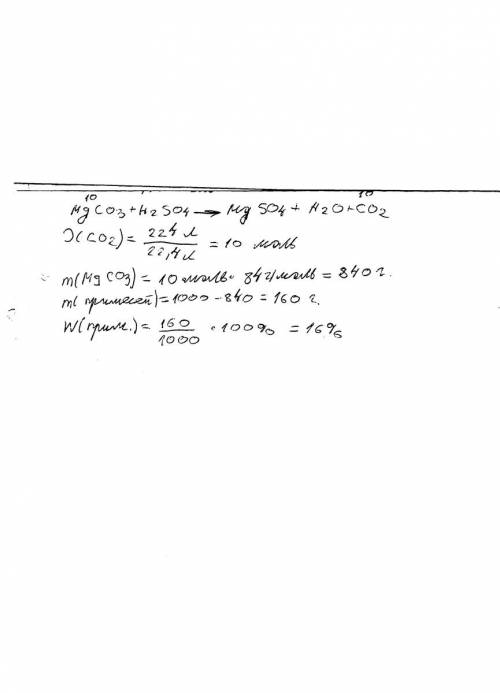 10 10
MgCO3 + H2SO4 → MgSO4 + H2O + CO2
υ(CO2) = 224 л / 22,4 л = 10 моль
m(MgCO3) = 10 моль · 84 г/моль = 840 г.
m(примесей) = 1000 - 840 = 160 г.
W(прим.) = 160 / 1000 · 100% = 16%